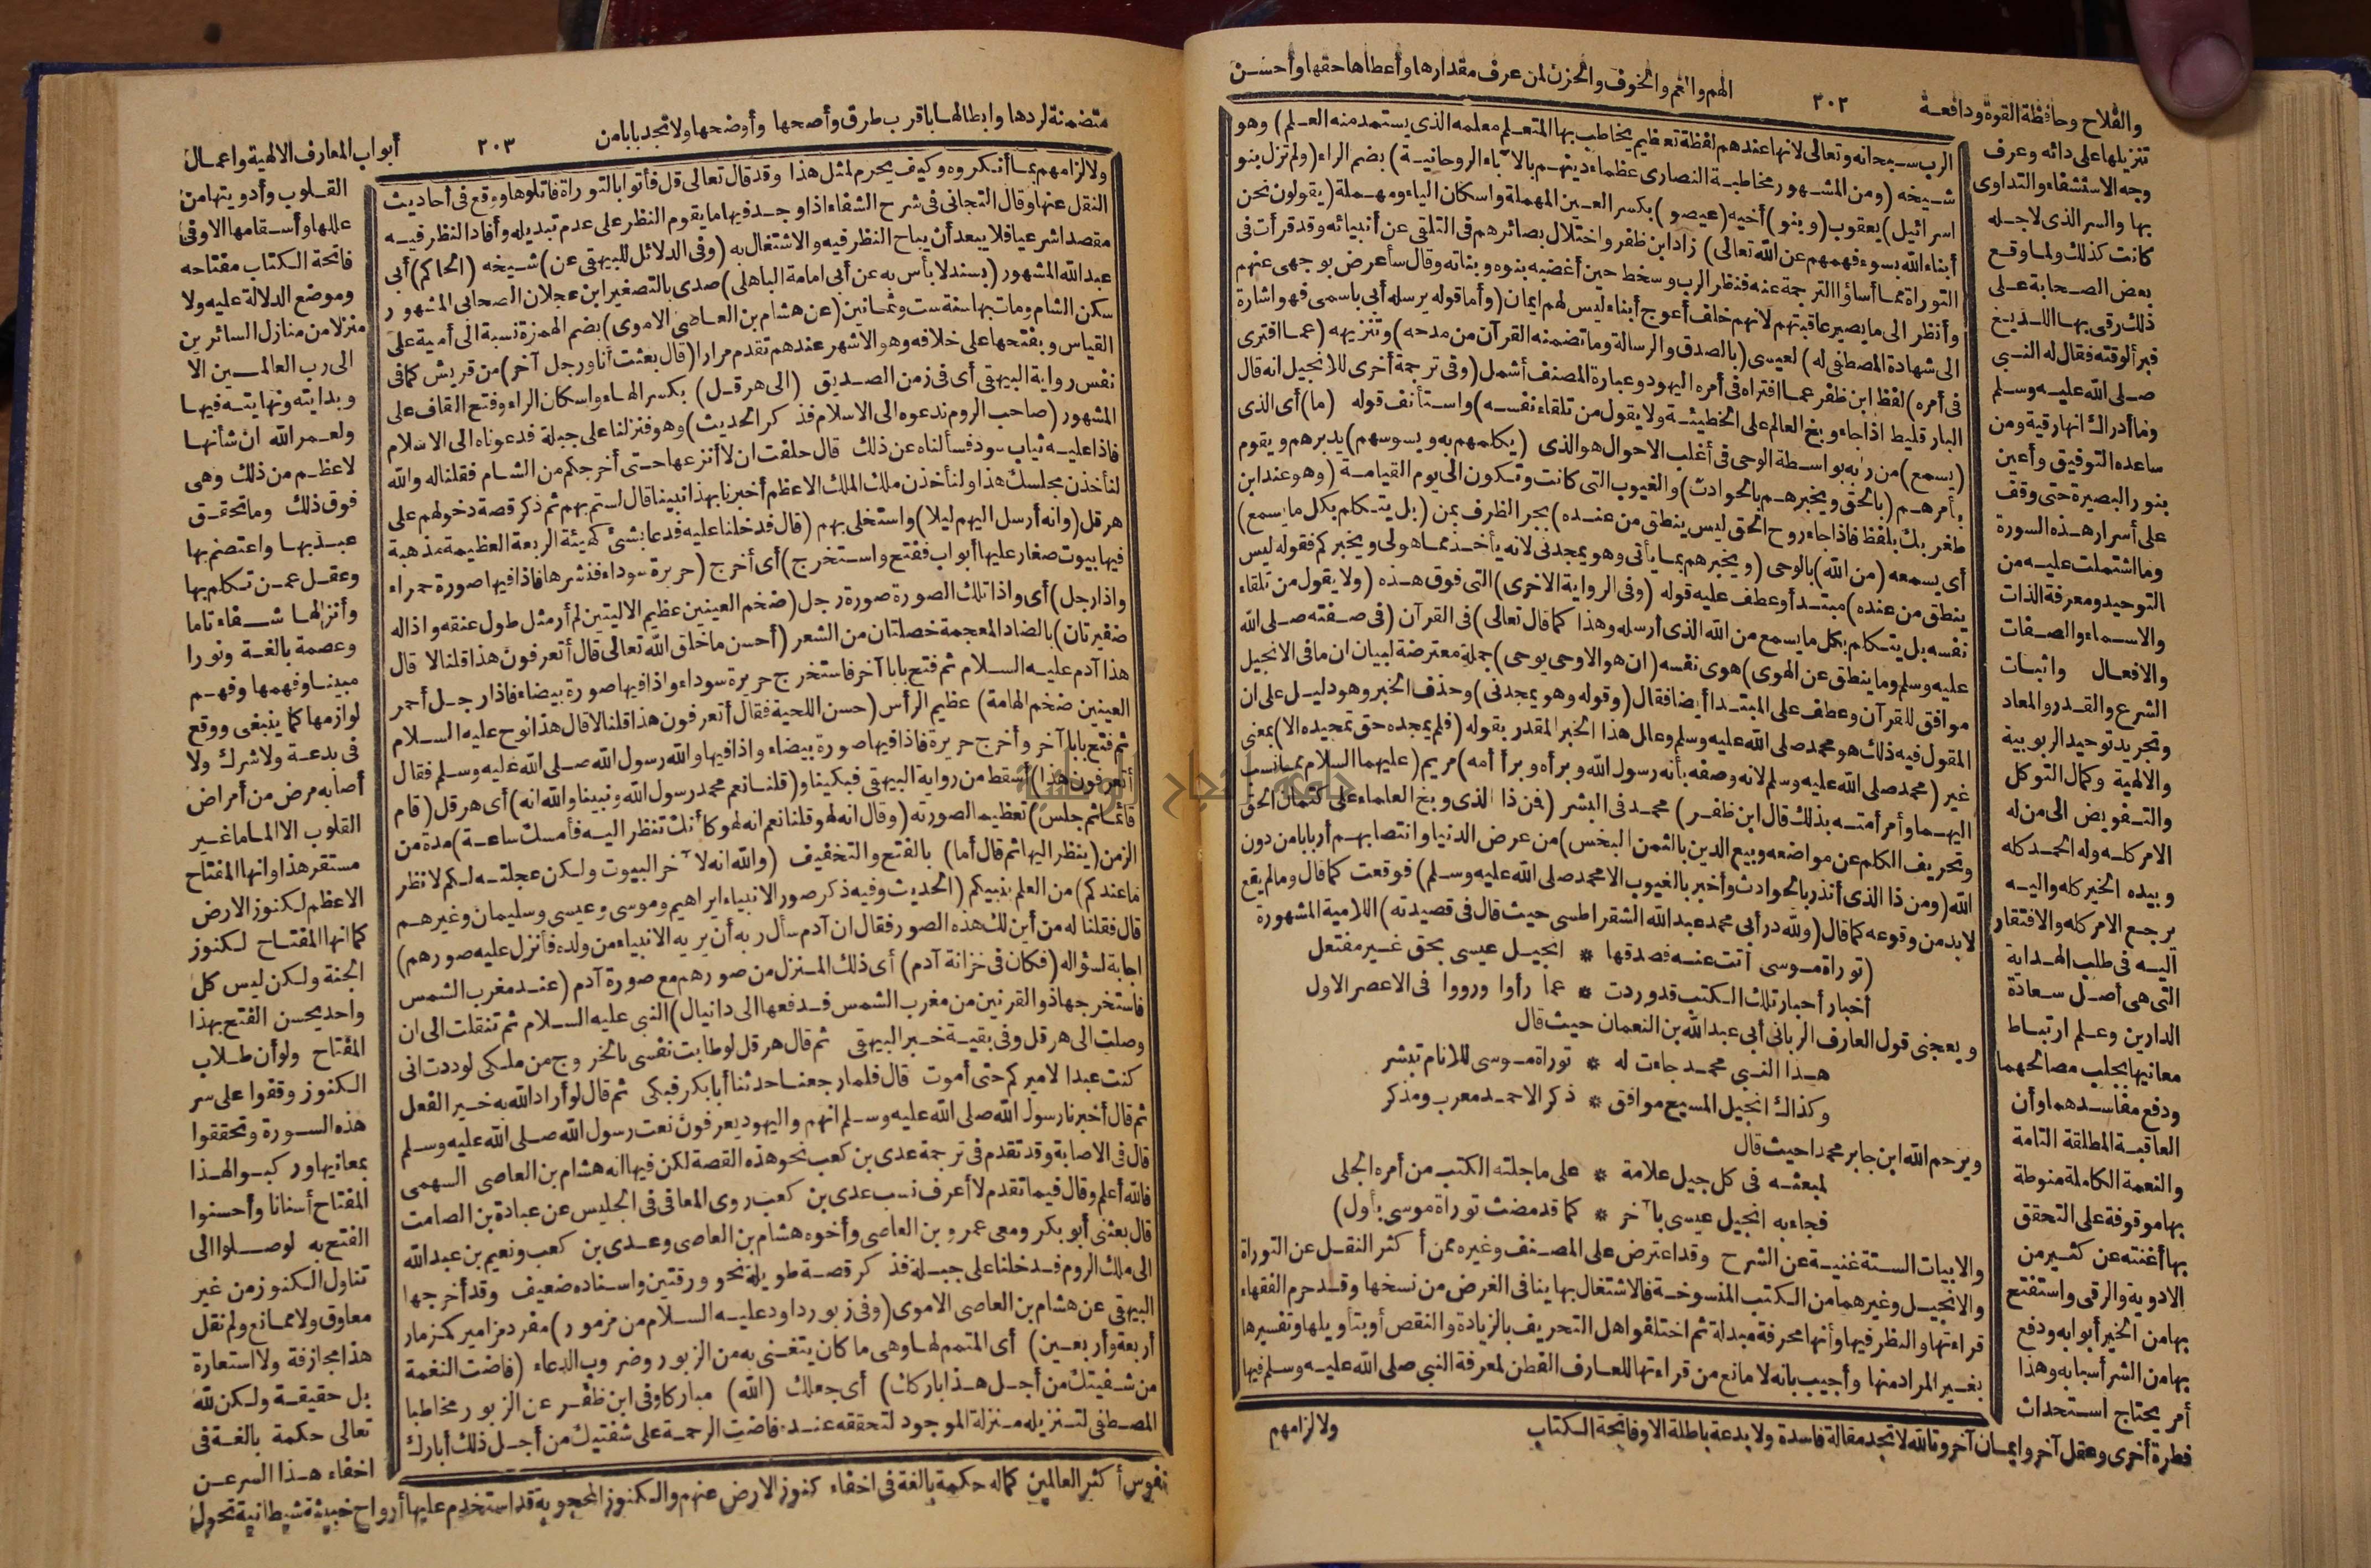 والفلاح وحافظة القوة ودافعة
٢٠٢
الهم والغم والخوف والحزن لمن عرف مقدارها وأعطاها حقها وأحسن
تنزيلها على دائه وعرف
وجه الاستشفاء والتداوى
بها والسر الذى لاجله
كانت كذلك ولما وقع
بعض الصحابة على
ذلك رقى بها اللديغ
فبرألوقته فقال له النبى
صلى الله عليه وسلم
وما أدراك انها رقية ومن
ساعده التوفيق وأعين
بنور البصيرة حتى وقف
على أسرار هذه السورة
وما اشتملت عليه من
التوحيد ومعرفة الذات
والاسماء والصفات
والافعال واثبات
الشرع والقدر والمعاد
وتجريد توحيد الربوبية
والالهية وكمال التوكل
والتفويض الى من له
الامر كله وله الحمد كله
وبيده الخير كله واليه
يرجع الامر كله والافتقار
اليه فى طلب الهداية
التى هى أصل سعادة
الدارين وعلم ارتباط
معانيها بجلب مصالحهما
ودفع مفاسدهما وأن
العاقبة المطلقة التامة
والنعمة الكاملة منوطة
بها موقوفة على التحقق
بها أغنته عن كثير من
الادوية والرقى واستفتح
بها من الخير أبوابه ودفع
بها من الشر أسبابه وهذا
أمر يحتاج استحداث
فطرة أخرى وعقل آخر وايمان آخر وتالله لا تجد مقالة فاسدة ولا بدعة باطلة الا وفاتحة الكتاب
الرب سبحانه وتعالى لانها عندهم لفظة تعظيم يخاطب بها المتعلم معلمه الذى يستمد منه العلم) وهو
شيخه (ومن المشهور مخاطبة النصارى عظماء دينهم بالآباء الروحانية) بضم الراء (ولم تزل بنو
اسرائيل) يعقوب (وبنو) أخيه (عيصو) بكسر العين المهملة واسكان الياء ومهملة (يقولون نحن
أبناء الله بسوء فهمهم عن الله تعالى) زاد ابن ظفر واختلال بصائرهم فى التلقى عن أنبيائه وقد قرأت فى
التوراة مما أساؤا الترجمة عنه فنظر الرب وسخط حين أغضبه بنوه وبناته وقال سأعرض بوجهى عنهم
وأنظر الى ما يصير عاقبتهم لانهم خلف أعوج أبناء ليس لهم ايمان (وأما قوله يرسله أبى باسمى فهو اشارة
الى شهادة المصطفى له) لعيسى (بالصدق والرسالة وما تضمنه القرآن من مدحه) وتنزيهه (عما افترى
فى أمره) لفظ ابن ظفر عما افتراه فى أمره اليهود وعبارة المصنف أشمل (وفى ترجمة أخرى للانجيل انه قال
البارقليط اذا جاء وبخ العالم على الخطيئة ولا يقول من تلقاء نفسه) واستأنف قوله (ما) أى الذى
(يسمع) من ربه بواسطة الوحى فى أغلب الاحوال هو الذى (يكلمهم به ويسوسهم) يدبرهم ويقوم
بأمرهم (بالحق ويخبرهم بالحوادث) والغيوب التى كانت وتكون الى يوم القيامة (وهو عند ابن
طغر بك بلفظ فاذا جاء روح الحق ليس ينطق من عنده) بجر الظرف بمن (بل يتكلم بكل ما يسمع)
أى يسمعه (من الله) بالوحى (ويخبرهم بما يأتى وهو يمجدنى لانه يأخذ مما هو لى ويخبركم فقوله ليس
ينطق من عنده) مبتدأ وعطف عليه قوله (وفى الرواية الاخرى) التى فوق هذه (ولا يقول من تلقاء
نفسه بل يتكلم بكل ما يسمع من الله الذى أرسله وهذا كما قال تعالى) فى القرآن (فى صفته صلى الله
عليه وسلم وما ينطق عن الهوى) هوى نفسه (ان هو الا وحى يوحى) جملة معترضة لبيان ان ما فى الانجيل
موافق للقرآن وعطف على المبتدا أيضا فقال (وقوله وهو يمجدنى) وحذف الخبر وهو دليل على ان
المقول فيه ذلك هو محمد صلى الله عليه وسلم وعلل هذا الخبر المقدر بقوله (فلم يمجده حق تمجيده الا) بمعنى
غير (محمد صلى الله عليه وسلم لانه وصفه بأنه رسول الله وبرأه وبرأ أمه) مريم (عليهما السلام مما نسب
اليهما وأمر أمته بذلك قال ابن ظفر) محمد فى البشر (فمن ذا الذى وبخ العلماء على كتمان الحق
وتحريف الكلم عن مواضعه وبيع الدين بالثمن البخس) من عرض الدنيا وانتصابهم أربابا من دون
الله (ومن ذا الذى أنذر بالحوادث وأخبر بالغيوب الا محمد صلى الله عليه وسلم) فوقعت كما قال وما لم يقع
لا بد من وقوعه كما قال (ولله در أبى محمد عبد الله الشقراطسى حيث قال فى قصيدته) اللامية المشهورة
(توراة موسى أتت عنه فصدقها * انجيل عيسى بحق غير مفتعل
أخبار أحبار تلك الكتب قد وردت * عما رأوا ورووا فى الاعصر الاول
ويعجبنى قول العارف الربانى أبى عبد الله بن النعمان حيث قال
هذا النبى محمد جاءت له * توراة موسى للانام تبشر
وكذاك انجيل المسيح موافق * ذكر الاحمد معرب ومذكر
ويرحم الله ابن جابر محمدا حيث قال
لمبعثه فى كل جيل علامة * على ما جلته الكتب من أمره الجلى
فجاء به انجيل عيسى بآخر * كما قد مضت توراة موسى بأول)
والابيات الستة غنية عن الشرح وقد اعترض على المصنف وغيره ممن أكثر النقل عن التوراة
والانجيل وغيرهما من الكتب المنسوخة فالاشتغال بها ينافى الغرض من نسخها وقد حرم الفقهاء
قراءتها والنظر فيها وأنها محرفة مبدلة ثم اختلفوا هل التحريف بالزيادة والنقص أو بتأويلها وتفسيرها
بغير المراد منها وأجيب بانه لا مانع من قراءتها للعارف الفطن لمعرفة النبى صلى الله عليه وسلم فيها
ولا لزامهم
متضمنة لردها وابطالها باقرب طرق وأصحها وأوضحها ولا تجد بابا من
٢٠٣
أبواب المعارف الالهية واعمال
ولا لزامهم بما أنكروه وكيف يحرم لمثل هذا وقد قال تعالى قل فأتوا بالتوراة فاتلوها ووقع فى أحاديث
النقل عنها وقال التجانى فى شرح الشفاء اذا وجد فيها ما يقوم النظر على عدم تبديله وأفاد النظر فيه
مقصدا شرعيا فلا يبعد أن يباح النظر فيه والاشتغال به (وفى الدلائل للبيهقى عن) شيخه (الحاكم) أبى
عبد الله المشهور (بسند لا بأس به عن أبى امامة الباهلى) صدى بالتصغير ابن عجلان الصحابى المشهور
سكن الشام ومات بها سنة ست وثمانين (عن هشام بن العاصى الاموى) بضم الهمزة نسبة الى أمية على
القياس وبفتحها على خلافه وهو الاشهر عندهم تقدم مرارا (قال بعثت أنا ورجل آخر) من قريش كما فى
نفس رواية البيهقى أى فى زمن الصديق (الى هرقل) بكسر الهاء واسكان الراء وفتح القاف على
المشهور (صاحب الروم ندعوه الى الاسلام فذكر الحديث) وهو فنزلنا على جبلة فدعوناه الى الاسلام
فاذا عليه ثياب سود فسألناه عن ذلك قال حلفت ان لا أنزعها حتى أخرجكم من الشام فقلنا له والله
لنأخذن مجلسك هذا ولنأخذن ملك الملك الاعظم أخبرنا بهذا نبينا قال لستم بهم ثم ذكر قصة دخولهم على
هرقل (وانه أرسل اليهم ليلا) واستخلى بهم (قال فدخلنا عليه فدعا بشئ كهيئة الربعة العظيمة مذهبة
فيها بيوت صغار عليها أبواب ففتح واستخرج) أى أخرج (حريرة سوداء فنشرها فاذا فيها صورة حمراء
واذا رجل) أى واذا تلك الصورة صورة رجل (ضخم العينين عظيم الاليتين لم أر مثل طول عنقه واذا له
ضفيرتان) بالضاد المعجمة خصلتان من الشعر (أحسن ما خلق الله تعالى قال أتعرفون هذا قلنا لا قال
هذا آدم عليه السلام ثم فتح بابا آخر فاستخرج حريرة سوداء واذا فيها صورة بيضاء فاذا رجل أحمر
العينين ضخم الهامة) عظيم الرأس (حسن اللحية فقال أتعرفون هذا قلنا لا قال هذا نوح عليه السلام
ثم فتح بابا آخر وأخرج حريرة فاذا فيها صورة بيضاء واذا فيها والله رسول الله صلى الله عليه وسلم فقال
أتعرفون هذا) أسقط من رواية البيهقى فبكينا و(قلنا نعم محمد رسول الله ونبينا والله انه) أى هرقل (قام
قائما ثم جلس) تعظيما لصورته (وقال انه لهو قلنا نعم انه لهو كأنك تنظر اليه فأمسك ساعة) مدة من
الزمن (ينظر اليها ثم قال أما) بالفتح والتخفيف (والله انه لآخر البيوت ولكن عجلته لكم لانظر
ما عندكم) من العلم بنبيكم (الحديث وفيه ذكر صور الانبياء ابراهيم وموسى وعيسى وسليمان وغيرهم
قال فقلنا له من أين لك هذه الصور فقال ان آدم سأل ربه أن يريه الانبياء من ولده فأنزل عليه صورهم)
اجابة لسؤاله (فكان فى خزانة آدم) أى ذلك المنزل من صورهم مع صورة آدم (عند مغرب الشمس
فاستخرجها ذو القرنين من مغرب الشمس فدفعها الى دانيال) النبى عليه السلام ثم تنقلت الى ان
وصلت الى هرقل وفى بقية خبر البيهقى ثم قال هرقل لو طابت نفسى بالخروج من ملكى لوددت انى
كنت عبدا لاميركم حتى أموت قال فلما رجعنا حدثنا أبا بكر فبكى ثم قال لو أراد الله به خير الفعل
ثم قال أخبرنا رسول الله صلى الله عليه وسلم انهم واليهود يعرفون نعت رسول الله صلى الله عليه وسلم
قال فى الاصابة وقد تقدم فى ترجمة عدى بن كعب نحو هذه القصة لكن فيها انه هشام بن العاصى السهمى
فالله أعلم وقال فيما تقدم لا أعرف نسب عدى بن كعب روى المعافى فى الجليس عن عبادة بن الصامت
قال بعثنى أبو بكر ومعى عمرو بن العاصى وأخوه هشام بن العاصى وعدى بن كعب ونعيم بن عبد الله
الى ملك الروم فدخلنا على جبلة فذكر قصة طويلة نحو ورقتين واسناده ضعيف وقد أخرجها
البيهقى عن هشام بن العاصى الاموى (وفى زبور داود عليه السلام من مزمور) مفرد مزامير كمزمار
أربعة وأربعين) أى المتمم لها وهى ما كان يتغنى به من الزبور وضروب الدعاء (فاضت النعمة
من شفيتك من أجل هذا باركك) أى جعلك (الله) مباركا وفى ابن ظفر عن الزبور مخاطبا
المصطفى لتنزيله منزلة الموجود لتحققه عنده فاضت الرحمة على شفتيك من أجل ذلك أبارك
القلوب وأدويتها من
عللها وأسقامها الا وفى
فاتحة الكتاب مفتاحه
وموضع الدلالة عليه ولا
منزلا من منازل السائرين
الى رب العالمين الا
وبدايته ونهايته فيها
ولعمر الله ان شأنها
لاعظم من ذلك وهى
فوق ذلك وما تحقق
عبد بها واعتصم بها
وعقل عمن تكلم بها
وأنزلها شفاء تاما
وعصمة بالغة ونورا
مبينا وفهمها وفهم
لوازمها كما ينبغى ووقع
فى بدعة ولا شرك ولا
أصابه مرض من أمراض
القلوب الا لماما غير
مستقر هذا وانها المفتاح
الاعظم لكنوز الارض
كما انها المفتاح لكنوز
الجنة ولكن ليس كل
واحد يحسن الفتح بهذا
المفتاح ولو أن طلاب
الكنوز وقفوا على سر
هذه السورة وتحققوا
بمعانيها وركبوا لهذا
المفتاح أسنانا وأحسنوا
الفتح به لوصلوا الى
تناول الكنوز من غير
معاوق ولا ممانع ولم نقل
هذا مجازفة ولا استعارة
بل حقيقة ولكن لله
تعالى حكمة بالغة فى
اخفاء هذا السر عن
نفوس أكثر العالمين كما له حكمة بالغة فى اخفاء كنوز الارض عنهم والكنوز المحجوبة قد استخدم عليها أرواح خبيثة شيطانية تحول